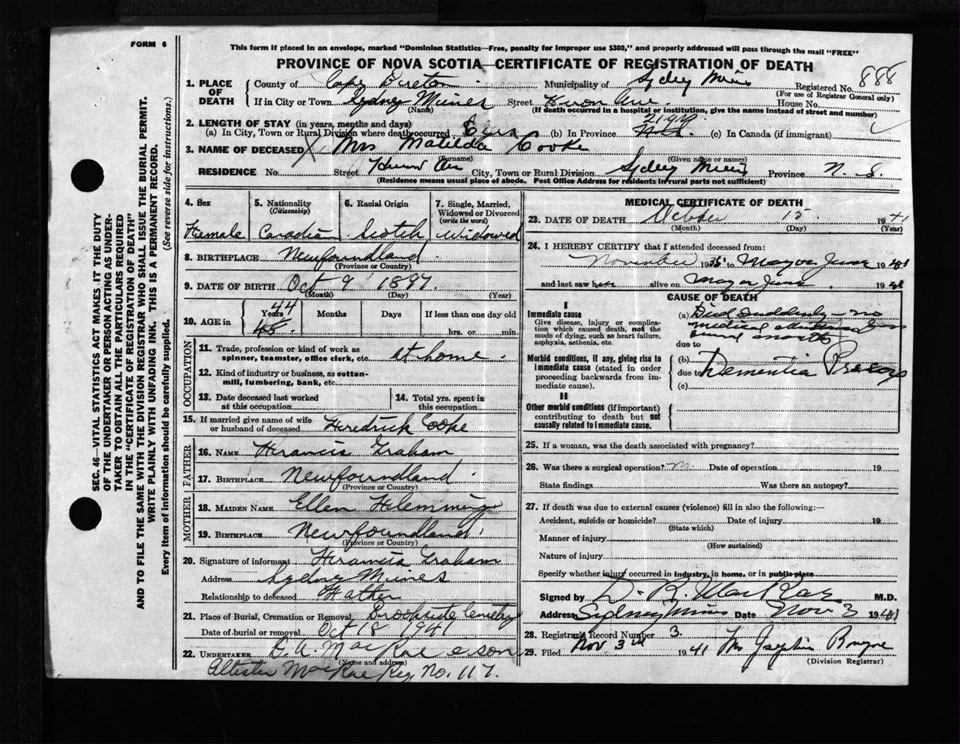 FORM 6
This form if placed in an envelope, marked "Dominion Statistics—Free, penalty for improper use $300," and properly addressed will pass through the mail "FREE"
PROVINCE OF NOVA SCOTIA—CERTIFICATE OF REGISTRATION OF DEATH
888
1. PLACE OF DEATH
County of Cape Breton Municipality of Sydney Mines Registered No.
(For use of Registrar General only)
If in City or Town Sydney Mines Street House No.
(Name) (If death occurred in a hospital or institution, give the name instead of street and number)
2. LENGTH OF STAY (in years, months and days)
(a) In City, Town or Rural Division where death occurred (b) In Province (c) In Canada (if immigrant)
3. NAME OF DECEASED Mrs Matilda Cooke
(Surname) (Given name or names)
RESIDENCE No. Street City, Town or Rural Division Sydney Mines Province N. S.
(Residence means usual place of abode. Post Office Address for residents in rural parts not sufficient)
4. Sex
Female
5. Nationality
(Citizenship)
Canadian
6. Racial Origin
Scotch
7. Single, Married, Widowed or Divorced
(write the word)
Widowed
8. BIRTHPLACE Newfoundland
(Province or Country)
9. DATE OF BIRTH Oct 9 1897
(Month) (Day) (Year)
10. AGE in
Years Months Days If less than one day old
44
45
hrs. or min.
OCCUPATION
11. Trade, profession or kind of work as spinner, teamster, office clerk, etc. at home
12. Kind of industry or business, as cotton-mill, lumbering, bank, etc.
13. Date deceased last worked at this occupation
14. Total yrs. spent in this occupation
15. If married give name of wife or husband of deceased Fredrick Cooke
FATHER
16. NAME Francis Graham
17. BIRTHPLACE Newfoundland
(Province or Country)
MOTHER
18. MAIDEN NAME Ellen Flemming
19. BIRTHPLACE Newfoundland
(Province or Country)
20. Signature of informant Francis Graham
Address Sydney Mines
Relationship to deceased Father
21. Place of Burial, Cremation or Removal Brookside Cemetery
Date of burial or removal Oct 18 1941
22. UNDERTAKER D. A. MacRae & son
(Name and address)
MacRae Reg. No. 117.
MEDICAL CERTIFICATE OF DEATH
23. DATE OF DEATH October 15 1941
(Month) (Day) (Year)
24. I HEREBY CERTIFY that I attended deceased from:
November to May or June 1941
and last saw her alive on May or June 1941
CAUSE OF DEATH
I
Immediate cause
Give disease, injury or complication which caused death, not the mode of dying, such as heart failure, asphyxia, asthenia, etc.
(a) Died suddenly - no medical attendance for months
due to
Morbid conditions, if any, giving rise to immediate cause (stated in order proceeding backwards from immediate cause).
(b)
due to Dementia Praecox
(c)
II
Other morbid conditions (if important) contributing to death but not causally related to immediate cause.
25. If a woman, was the death associated with pregnancy?
26. Was there a surgical operation? Date of operation 19
State findings Was there an autopsy?
27. If death was due to external causes (violence) fill in also the following:—
Accident, suicide or homicide? Date of injury 19
(State which)
Manner of injury
(How sustained)
Nature of injury
Specify whether injury occurred in industry, in home, or in public place
Signed by M.D.
Address Sydney Mines Date Nov 3 1941
28. Registrar's Record Number 3.
29. Filed Nov. 3rd 1941
(Division Registrar)
SEC. 46—VITAL STATISTICS ACT MAKES IT THE DUTY
OF THE UNDERTAKER OR PERSON ACTING AS UNDER-
TAKER TO OBTAIN ALL THE PARTICULARS REQUIRED
IN THE "CERTIFICATE OF REGISTRATION OF DEATH"
AND TO FILE THE SAME WITH THE DIVISION REGISTRAR WHO SHALL ISSUE THE BURIAL PERMIT.
WRITE PLAINLY WITH UNFADING INK. THIS IS A PERMANENT RECORD.
Every item of information should be carefully supplied. (See reverse side for instructions.)